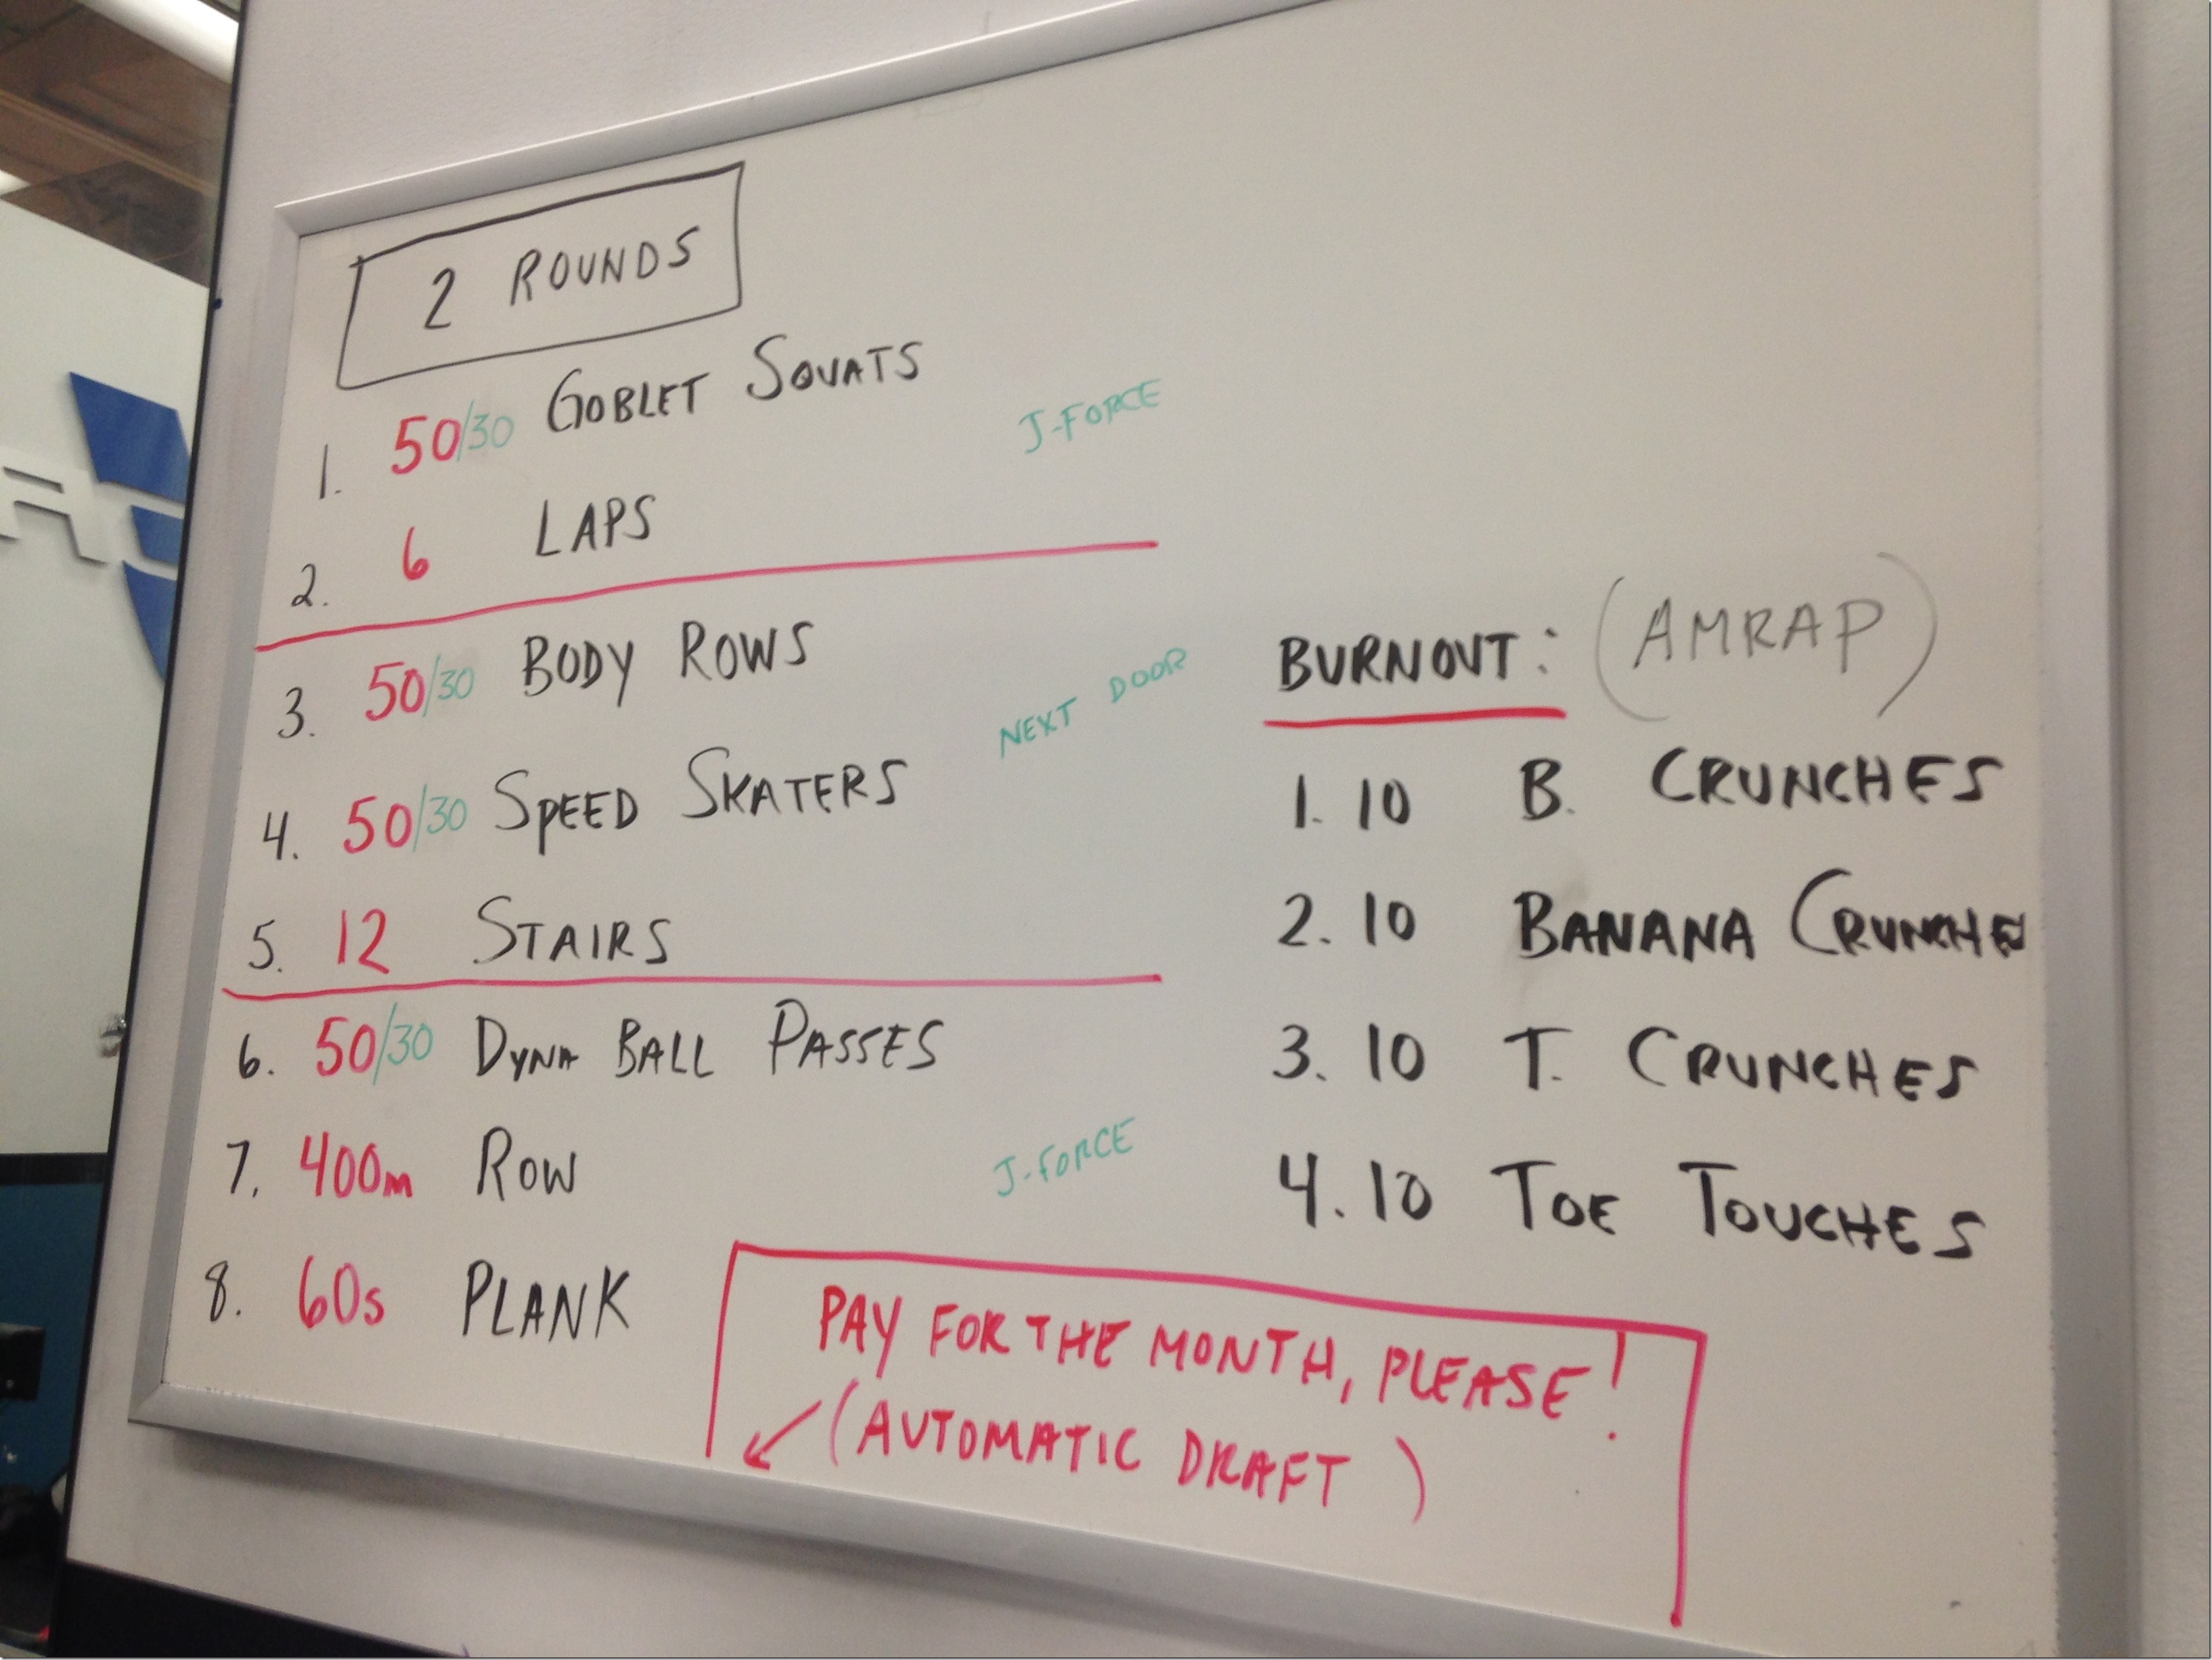 2 ROUNDS
1. 50/30 GOBLET SQUATS
J-FORCE
2. 6 LAPS
3. 50/30 BODY ROWS
NEXT DOOR
4. 50/30 SPEED SKATERS
5. 12 STAIRS
6. 50/30 DYNA BALL PASSES
7. 400m ROW
J-FORCE
8. 60s PLANK
BURNOUT: (AMRAP)
1. 10 B. CRUNCHES
2. 10 BANANA
3. 10 T. CRUNCHES
4. 10 TOE TOUCHES
PAY FOR THE MONTH, PLEASE!
(AUTOMATIC DRAFT)